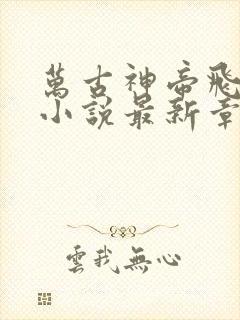 萬古神帝飛
小說最新章
雲我無心